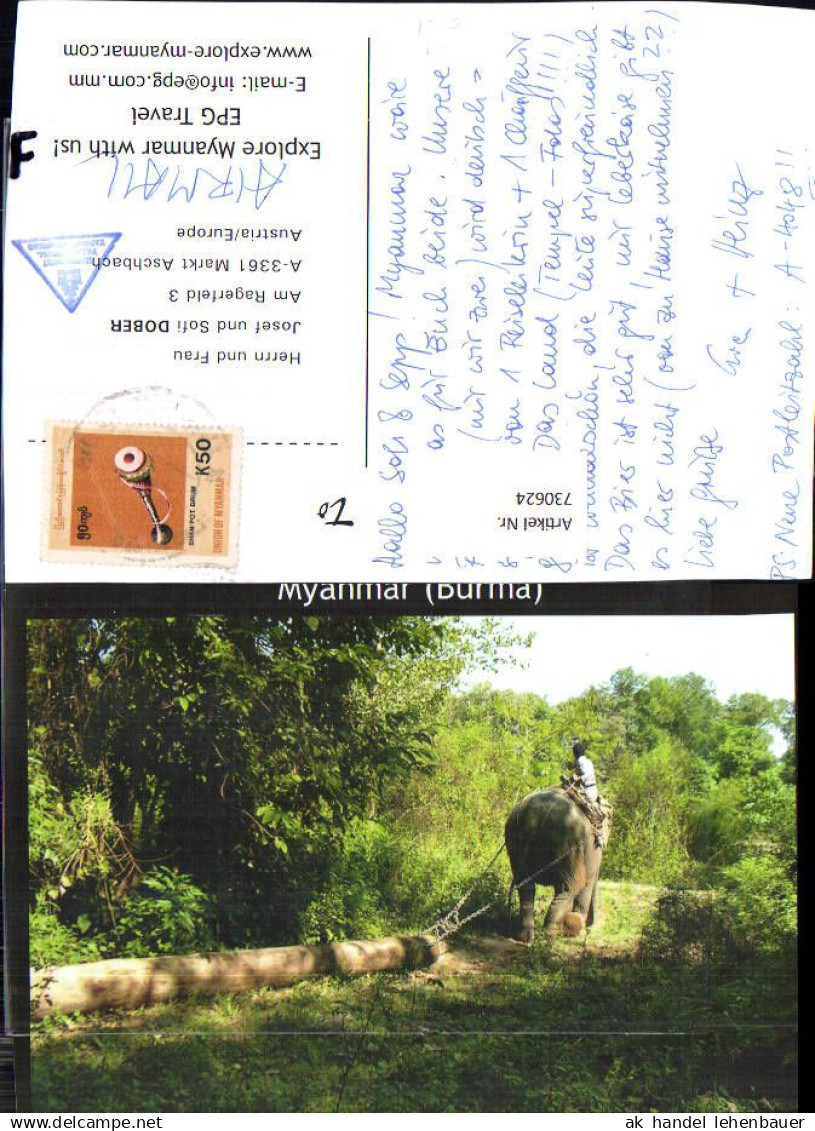 Explore Myanmar with us!
EPG Travel
E-mail: info@epg.com.mm
www.explore-myanmar.com
AIRMAIL
F
Herrn und Frau
Josef und Sofi DOBER
Am Ragerfeld 3
A-3361 Markt Aschbach
Austria/Europe
K50
SHAN POT DRUM
UNION OF MYANMAR
To
Artikel Nr.
730624
Hallo Sofi & Sepp! Myanmar wäre
as für Euch beide. Unsere
(nur wir zwei) wird deutsch =
von 1 Reiseleiterin + 1 Chauffeur
Das Land (Tempel - Fotos!!!!)
ist wunderschön, die Leute superfreundlich.
Das Bier ist sehr gut, nur Leberkäse gibt
es hier nicht (von zu Hause mitnehmen ??)
Liebe Grüße Eva + Heinz
PS: Neue Postleitzahl: A-4048!!
Myanmar (Burma)
ak handel lehenbauer